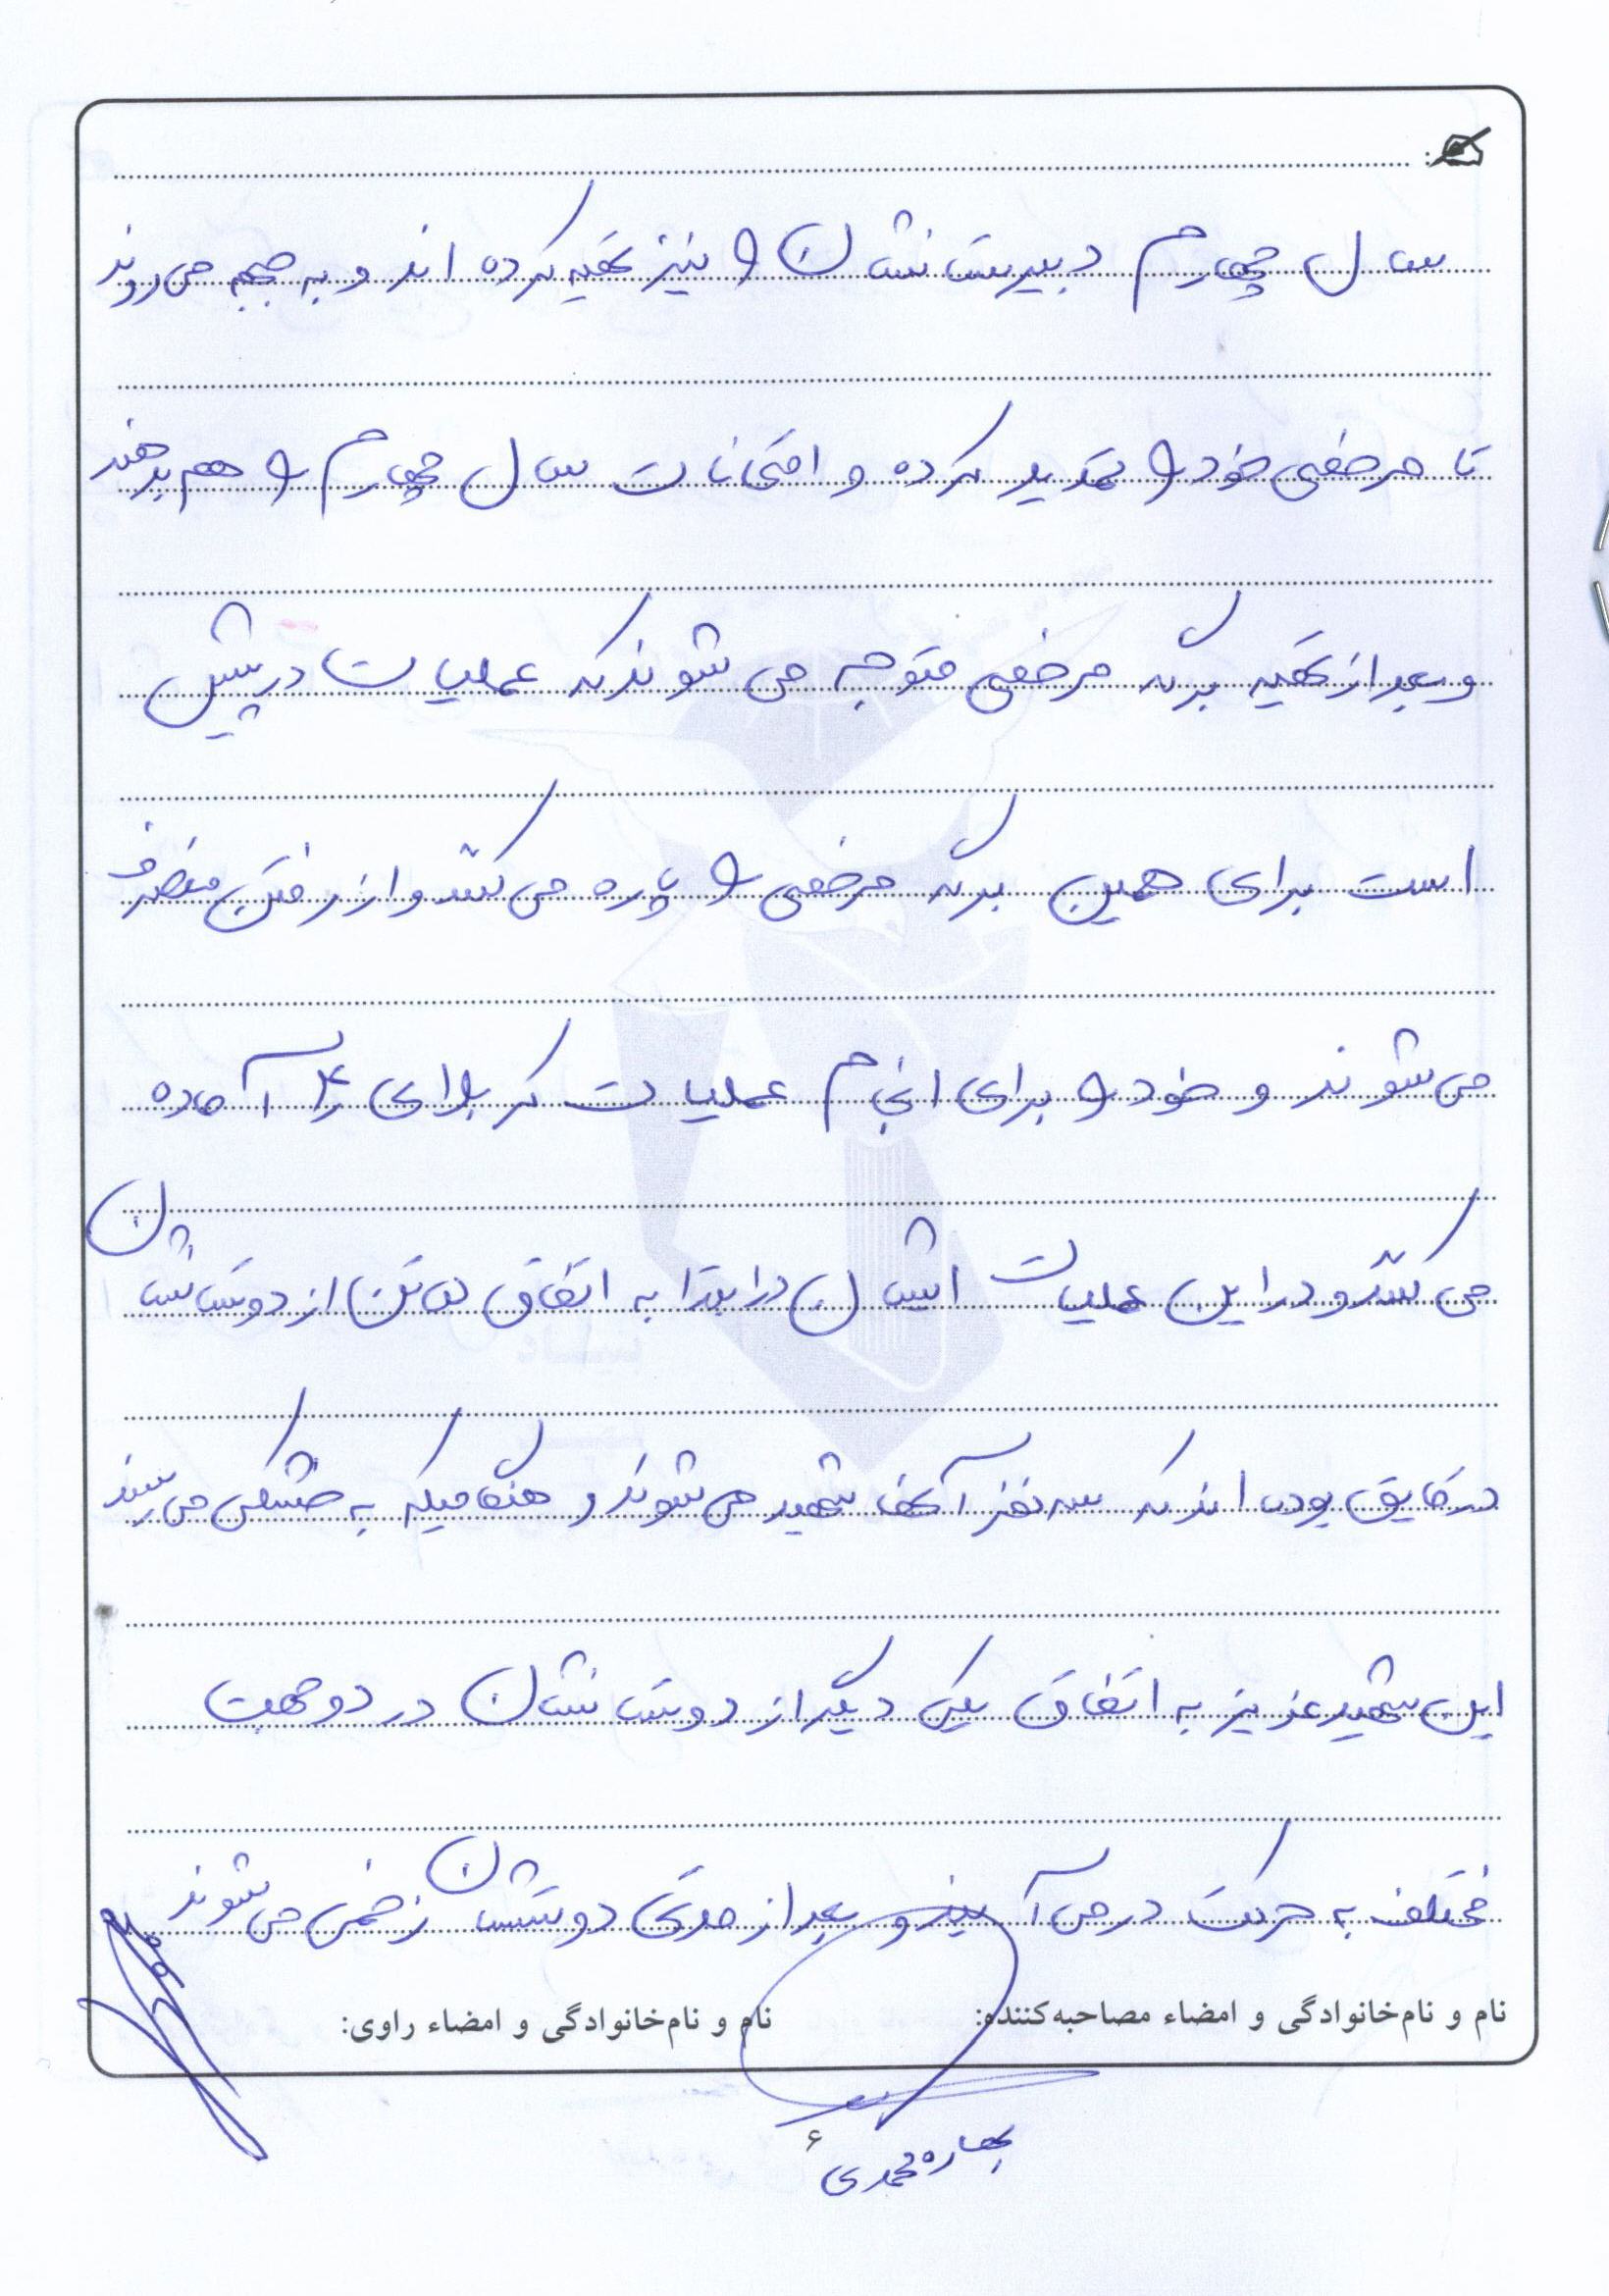 سال چهارم دبیرستانشان را نیز تهیه کرده اند و به جبهه می روند
تا مرخصی خود را تمدید کرده و امتحانات سال چهارم را هم بدهند
و بعد از تهیه برگه مرخصی متوجه می شوند که عملیات در پیش
است برای همین برگه مرخصی را پاره می کنند و از رفتن منصرف
می شوند و خود را برای انجام عملیات کربلای ۴ آماده
می کنند و در این عملیات ایشان در ابتدا به اتفاق تن از دوستانشان
در قایق بوده اند که سه نفر آنها شهید می شوند و هنگامیکه به خشکی می رسند
این شهید عزیز به اتفاق یکی دیگر از دوستانشان در دو جهت
مختلف به حرکت در می آیند و بعد از مدتی دوستشان زخمی می شوند
نام و نام‌خانوادگی و امضاء مصاحبه‌کننده: نام و نام‌خانوادگی و امضاء راوی:
۶
بهاره محمدی